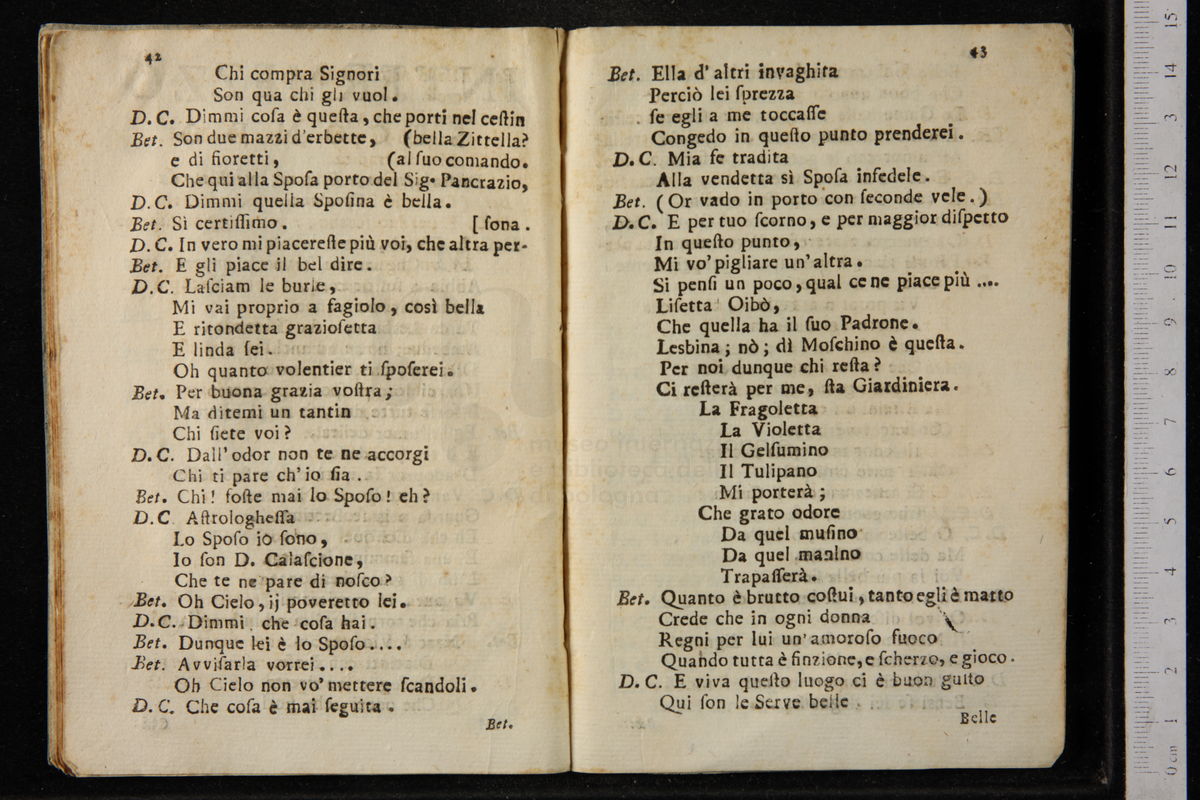 42
Chi compra Signori
Son qua chi gli vuol.
D.C. Dimmi coſa è queſta, che porti nel ceſtin
Bet. Son due mazzi d'erbette, (bella Zittella?
e di fioretti, (al ſuo comando.
Che qui alla Spoſa porto del Sig. Pancrazio,
D.C. Dimmi quella Spoſina è bella.
Bet. Sì certiſſimo. [ſona.
D.C. In vero mi piacereſte più voi, che altra per-
Bet. E gli piace il bel dire.
D.C. Laſciam le burle,
Mi vai proprio a fagiolo, così bella
E ritondetta grazioſetta
E linda ſei.
Oh quanto volentier ti ſpoſerei.
Bet. Per buona grazia voſtra;
Ma ditemi un tantin
Chi ſiete voi?
D.C. Dall'odor non te ne accorgi
Chi ti pare ch'io ſia.
Bet. Chi! foſte mai lo Spoſo! eh?
D.C. Aſtrologheſſa
Lo Spoſo io ſono,
Io ſon D. Calaſcione,
Che te ne pare di noſco?
Bet. Oh Cielo, ij poveretto lei.
D.C. Dimmi che coſa hai.
Bet. Dunque lei è lo Spoſo....
Bet. Avviſarla vorrei....
Oh Cielo non vo' mettere ſcandoli.
D.C. Che coſa è mai ſeguita.
Bet.
43
Bet. Ella d'altri invaghita
Perciò lei ſprezza
ſe egli a me toccaſſe
Congedo in queſto punto prenderei.
D.C. Mia fe tradita
Alla vendetta sì Spoſa infedele.
Bet. (Or vado in porto con ſeconde vele.)
D.C. E per tuo ſcorno, e per maggior diſpetto
In queſto punto,
Mi vo' pigliare un'altra.
Si penſi un poco, qual ce ne piace più ....
Liſetta Oibò,
Che quella ha il ſuo Padrone.
Lesbina; nò; dì Moſchino è queſta.
Per noi dunque chi reſta?
Ci reſterà per me, ſta Giardiniera.
La Fragoletta
La Violetta
Il Gelſumino
Il Tulipano
Mi porterà;
Che grato odore
Da quel muſino
Da quel manino
Trapaſſerà.
Bet. Quanto è brutto coſtui, tanto egli è matto
Crede che in ogni donna
Regni per lui un'amoroſo fuoco
Quando tutta è finzione, e ſcherzo, e gioco.
D.C. E viva queſto luogo ci è buon guſto
Qui ſon le Serve belle
Belle